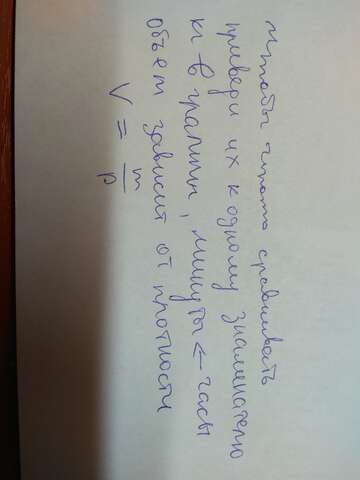 чтобы что-то сравнивать
приведи их к одному знаменателю
кг → в граммы, минуты ← часы
объем зависит от плотности
V = m/p